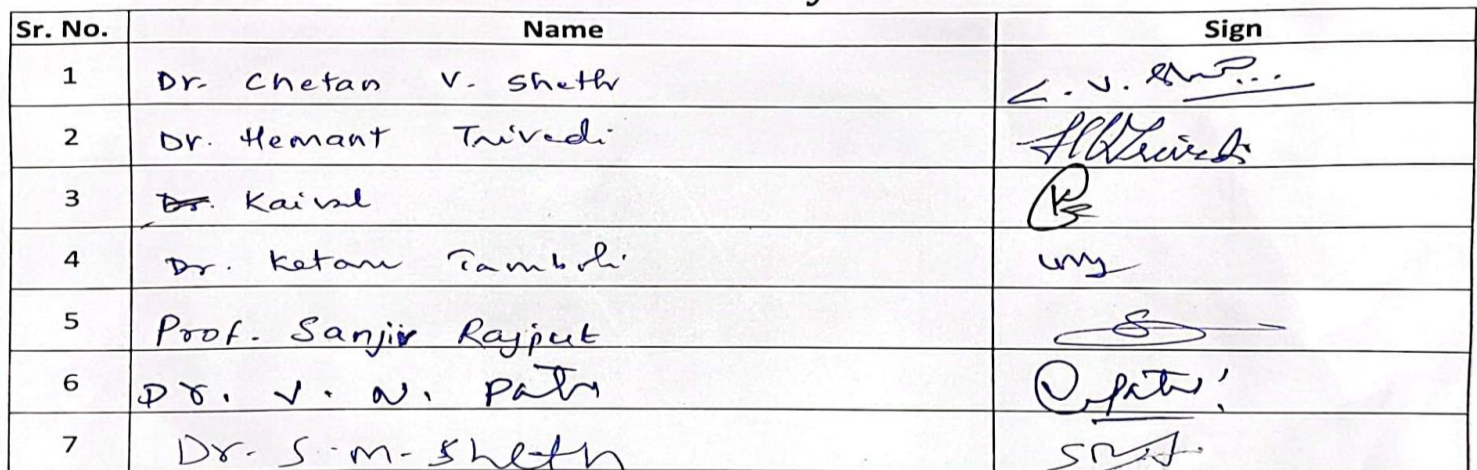 Sr. No. Name Sign
1 Dr. Chetan V. Sheth C. V.
2 Dr. Hemant Trivedi HKTrivedi
3 Dr. Kaival
4 Dr. Ketan Tamboli
5 Prof. Sanjiv Rajput S
6 Dr. V. N. Patel
7 Dr. S. M. Sheth